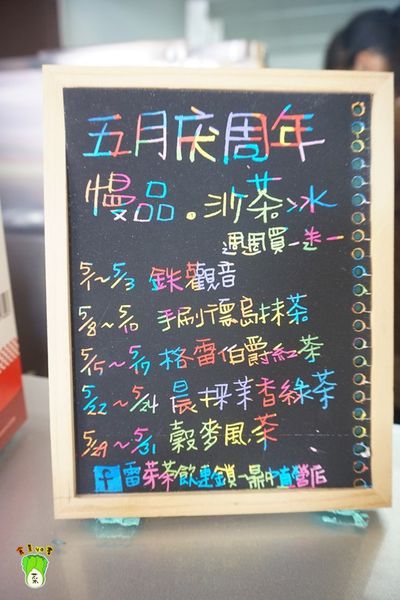 五月庆周年
慢品.沙茶冰
週週買一送一
5/1~5/3 鉄觀音
5/8~5/10 手刷德烏抹茶
5/15~5/17 格雷伯爵紅茶
5/22~5/24 晨採茉香綠茶
5/29~5/31 穀麥風茶
f 雷芽茶飲連鎖-鼎中直營店
菜